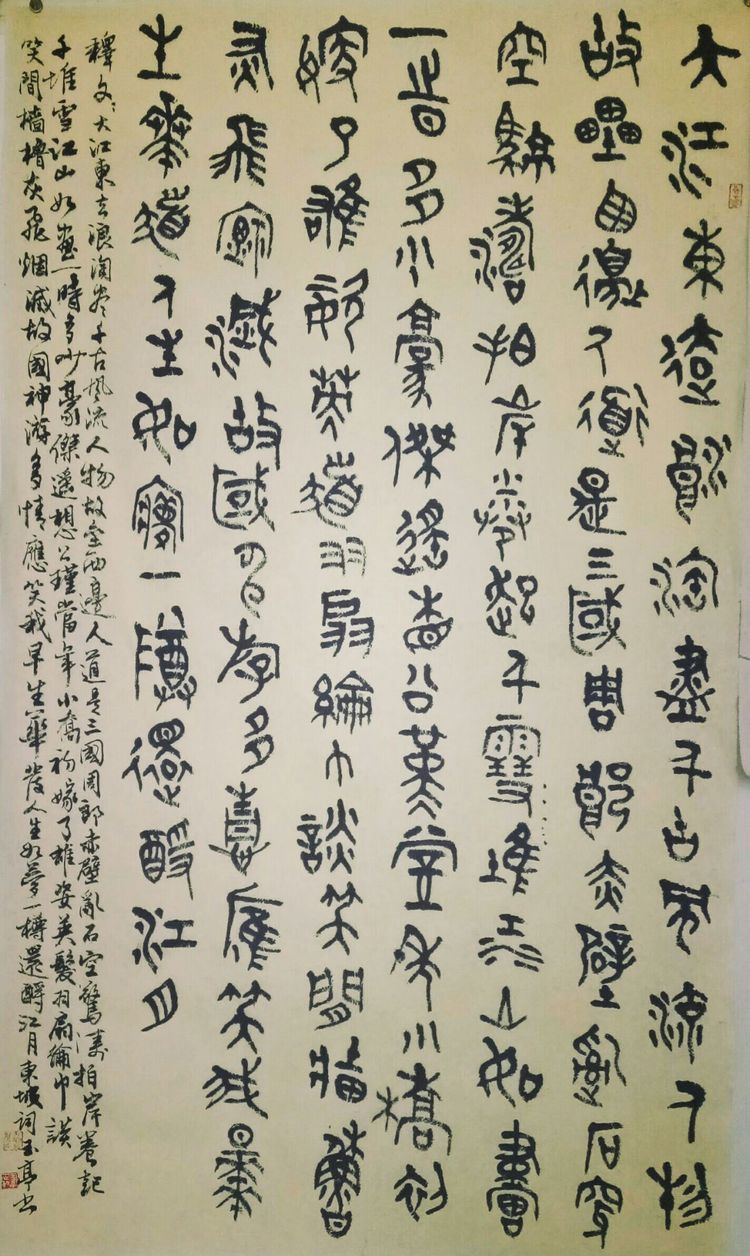 大江東去浪淘盡千古風流人物
故壘西邊人道是三國周郎赤壁亂石穿
空驚濤拍岸卷起千雪堆江山如畫
一時多少豪傑遙想公瑾當年小橋初
嫁了雄姿英發羽扇綸巾談笑間檣櫓
灰飛煙滅故國神存多情應笑我早
生華髮人生如夢一尊還酹江月
釋文：大江東去浪淘盡千古風流人物故壘西邊人道是三國周郎赤壁亂石空驚濤拍岸卷起
千堆雪江山如畫一時多少豪傑遙想公瑾當年小喬初嫁了雄姿英髮羽扇綸巾談
笑間檣櫓灰飛烟滅故國神游多情應笑我早生華發人生如夢一樽還酹江月東坡詞玉亭书